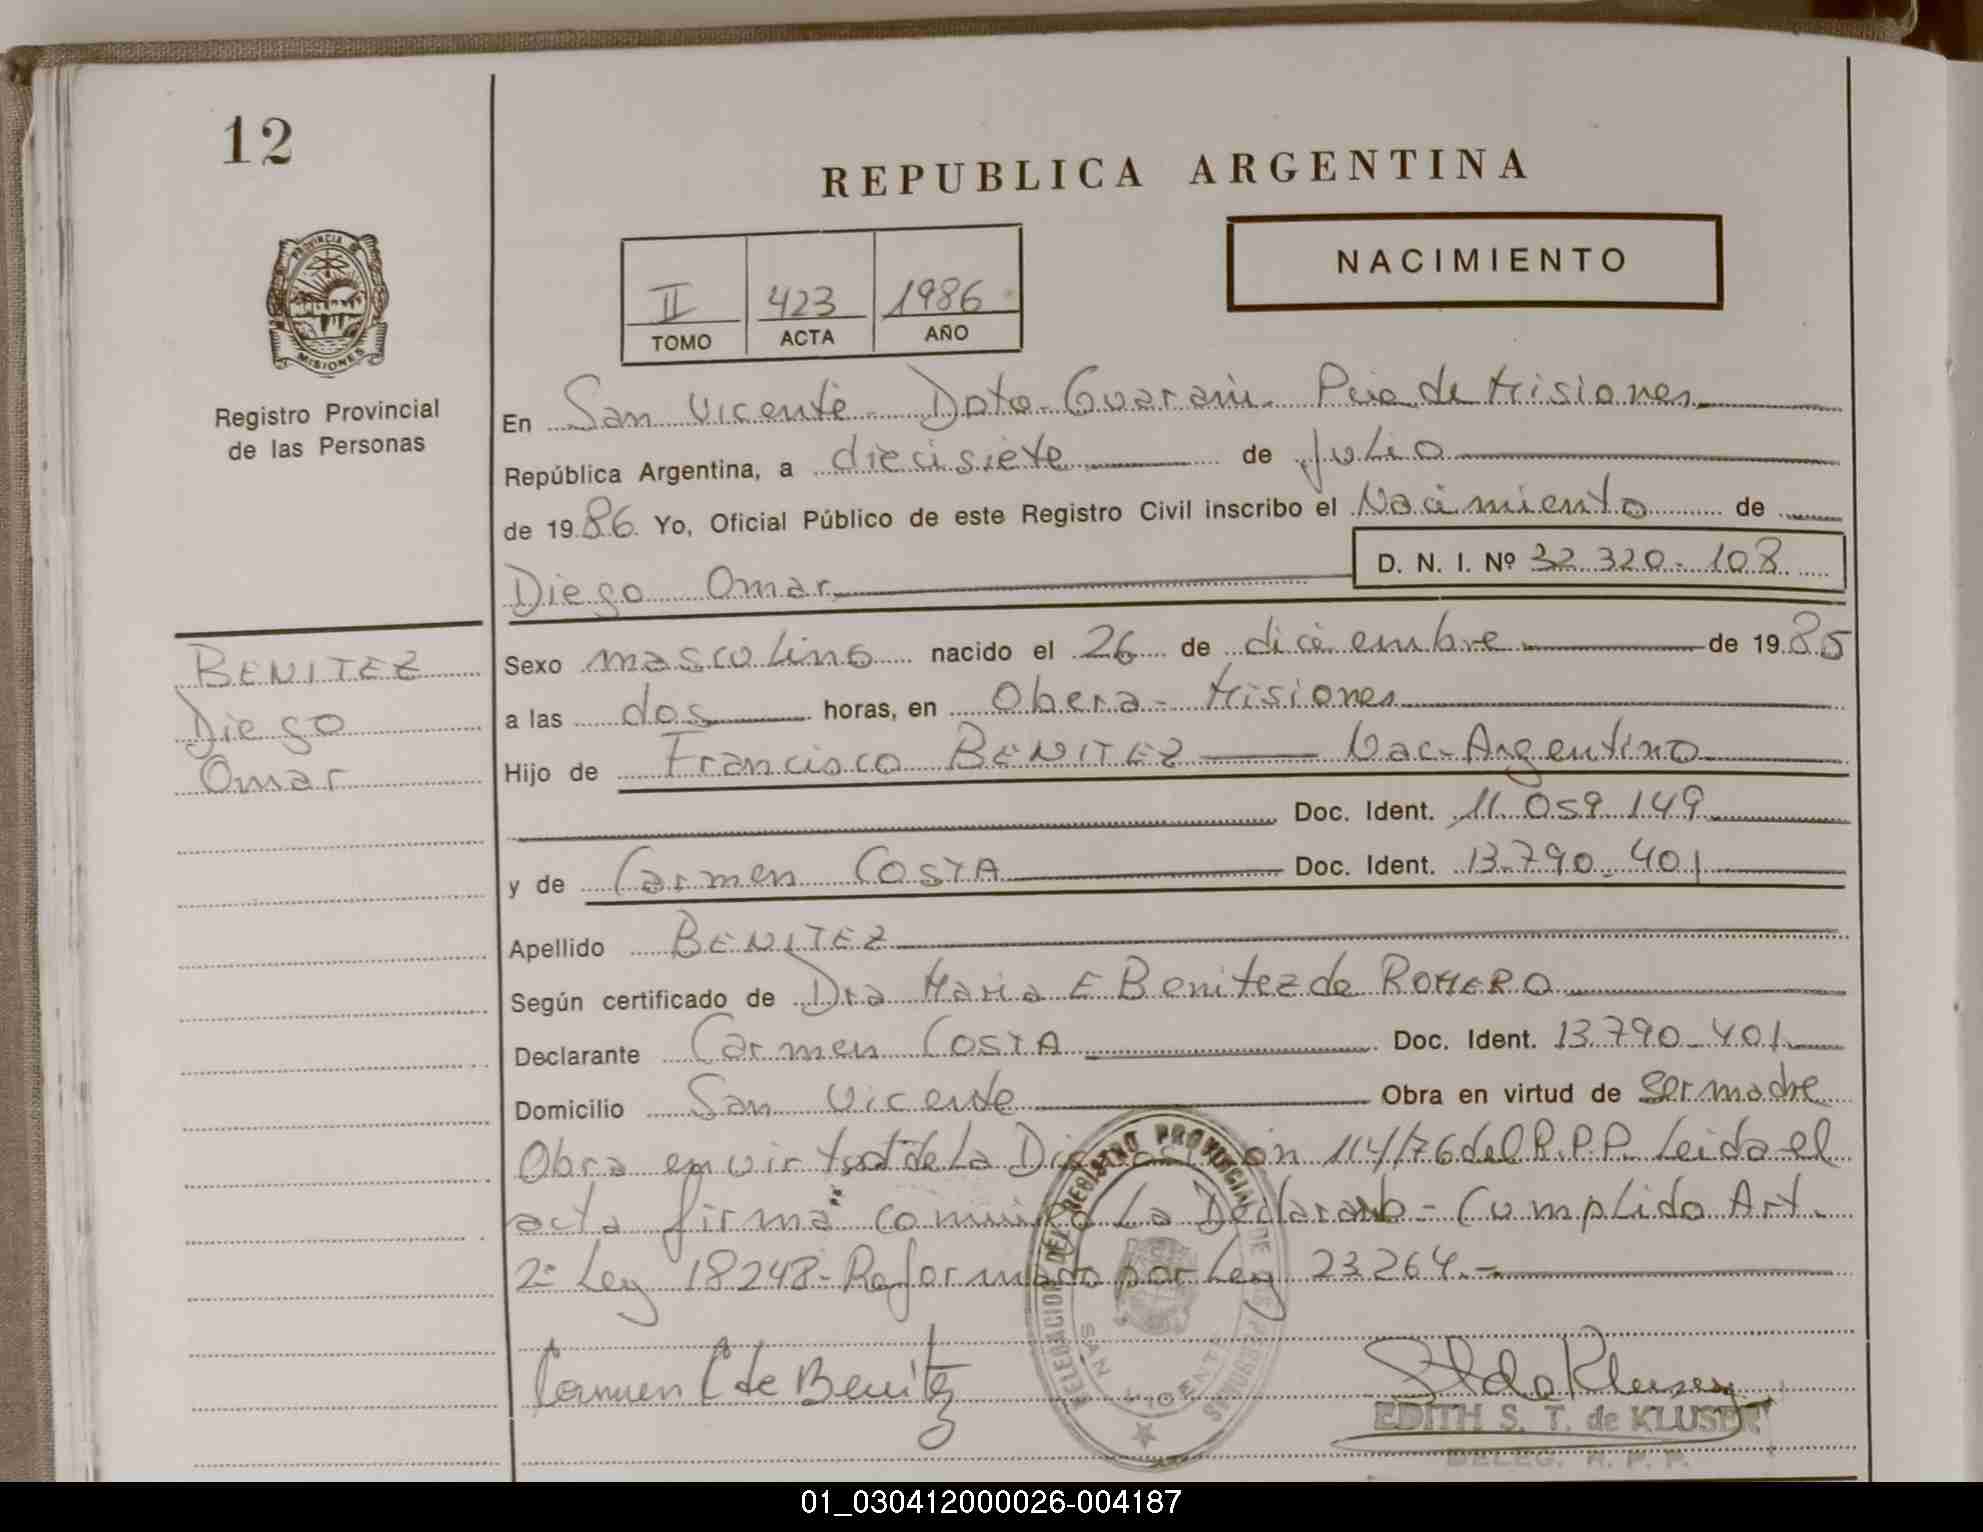 12
REPUBLICA ARGENTINA
NACIMIENTO
II 423 1986
TOMO ACTA AÑO
PROVINCIA DE
MISIONES
Registro Provincial
de las Personas
En San Vicente - Dpto. Guarani. Pcia de Misiones
República Argentina, a diecisiete de Julio
de 1986. Yo, Oficial Público de este Registro Civil inscribo el Nacimiento de
D. N. I. Nº 32.320.108
Diego Omar
BENITEZ
Diego
Omar
Sexo masculino nacido el 26 de diciembre de 1985
a las dos horas, en Obera - Misiones
Hijo de Francisco BENITEZ Nac-Argentino
Doc. Ident. 11.059.149
y de Carmen COSTA Doc. Ident. 13.790.401
Apellido BENITEZ
Según certificado de Dra Maria E Benitez de ROMERO
Declarante Carmen COSTA Doc. Ident. 13.790.401
Domicilio San Vicente Obra en virtud de ser madre
Obra en virtud de la Disposición 114/76 del R.P.P. Leida el
acta firma conmigo La Declarante - Cumplido Art.
2º Ley 18248 - Reformado por Ley 23264.-
Carmen C de Benitez
DELEGACION DEL REGISTRO PROVINCIAL DE LAS PERSONAS
SAN VICENTE
EDITH S. T. de KLUSER
DELEG. R. P. P.
01_030412000026-004187